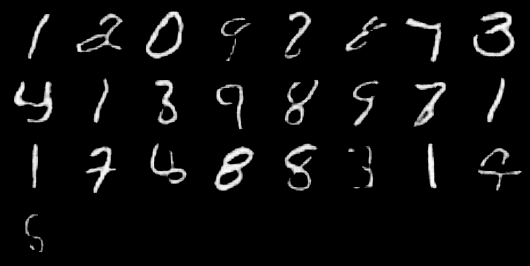 1 2 0 9 2 8 7 3
4 1 3 9 8 9 7 1
1 7 6 8 8 3 1 9
5